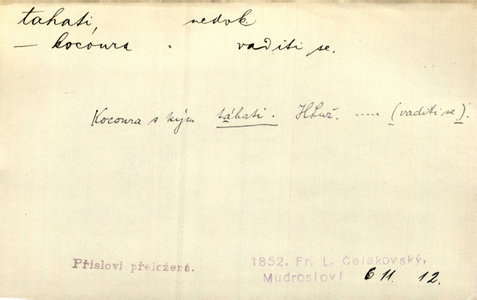 tahati, nedok
— kocoura " vaditi se.
Kocoura s kým táhati. HLuž. ..... (vaditi se).
Přísloví přeložená.
1852. Fr. L. Čelakovský,
Mudrosloví 611. 12.